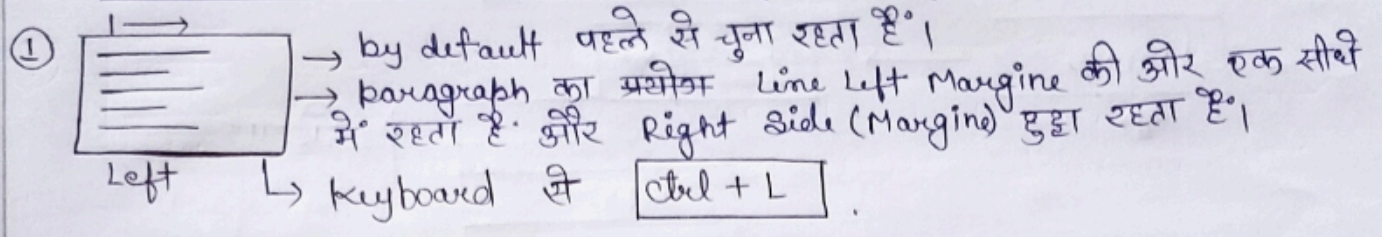 ①
→ by default पहले से चुना रहता है।
→ paragraph का प्रयोग Line Left Margine की ओर एक सीधे
में रहता है. और Right Side (Margine) हुहा रहता है।
Left
↳ Keyboard से ctrl + L .